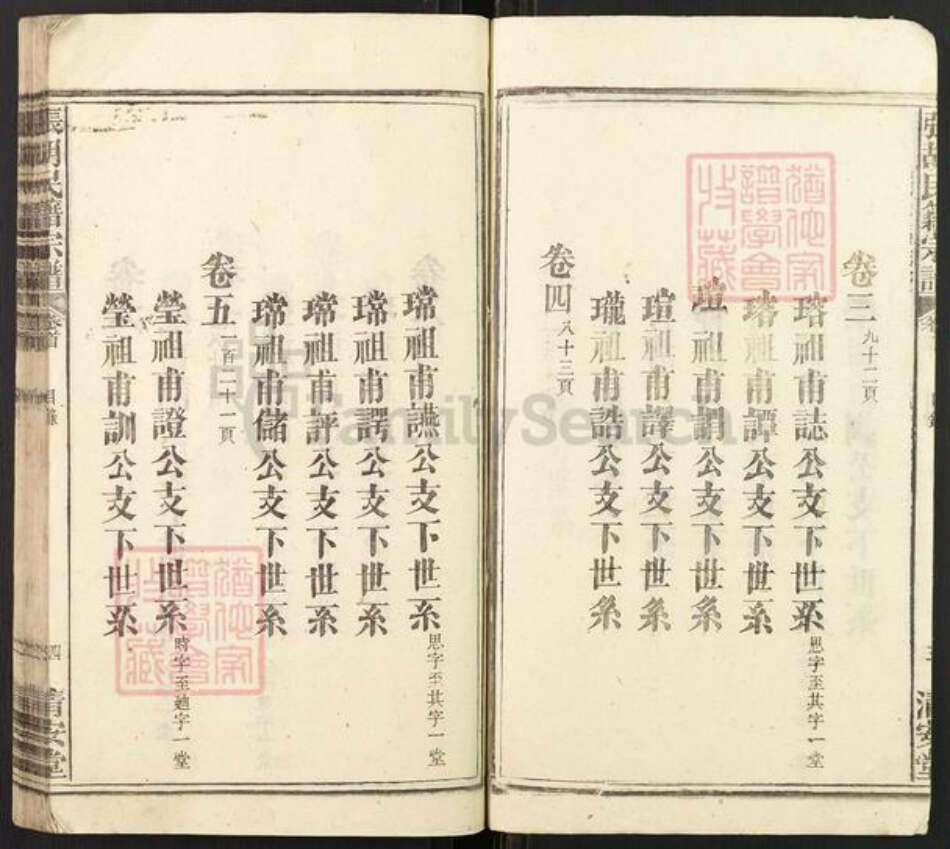 卷三 九十二頁
瑢祖甫誌公支下世系 思字至其字一堂
瑢祖甫譚公支下世系
瑄祖甫謂公支下世系
瑄祖甫譯公支下世系
瓏祖甫誥公支下世系
卷四 八十三頁
璫祖甫讌公支下世系 思字至其字一堂
璫祖甫諤公支下世系
璫祖甫評公支下世系
璫祖甫儲公支下世系
卷五 一百二十一頁
瑩祖甫證公支下世系 時字至迺字一堂
瑩祖甫訓公支下世系
張胡氏籍宗譜 卷首 目錄 四 清安堂
猶他家譜學會收藏
猶他家譜學會收藏
FamilySearch